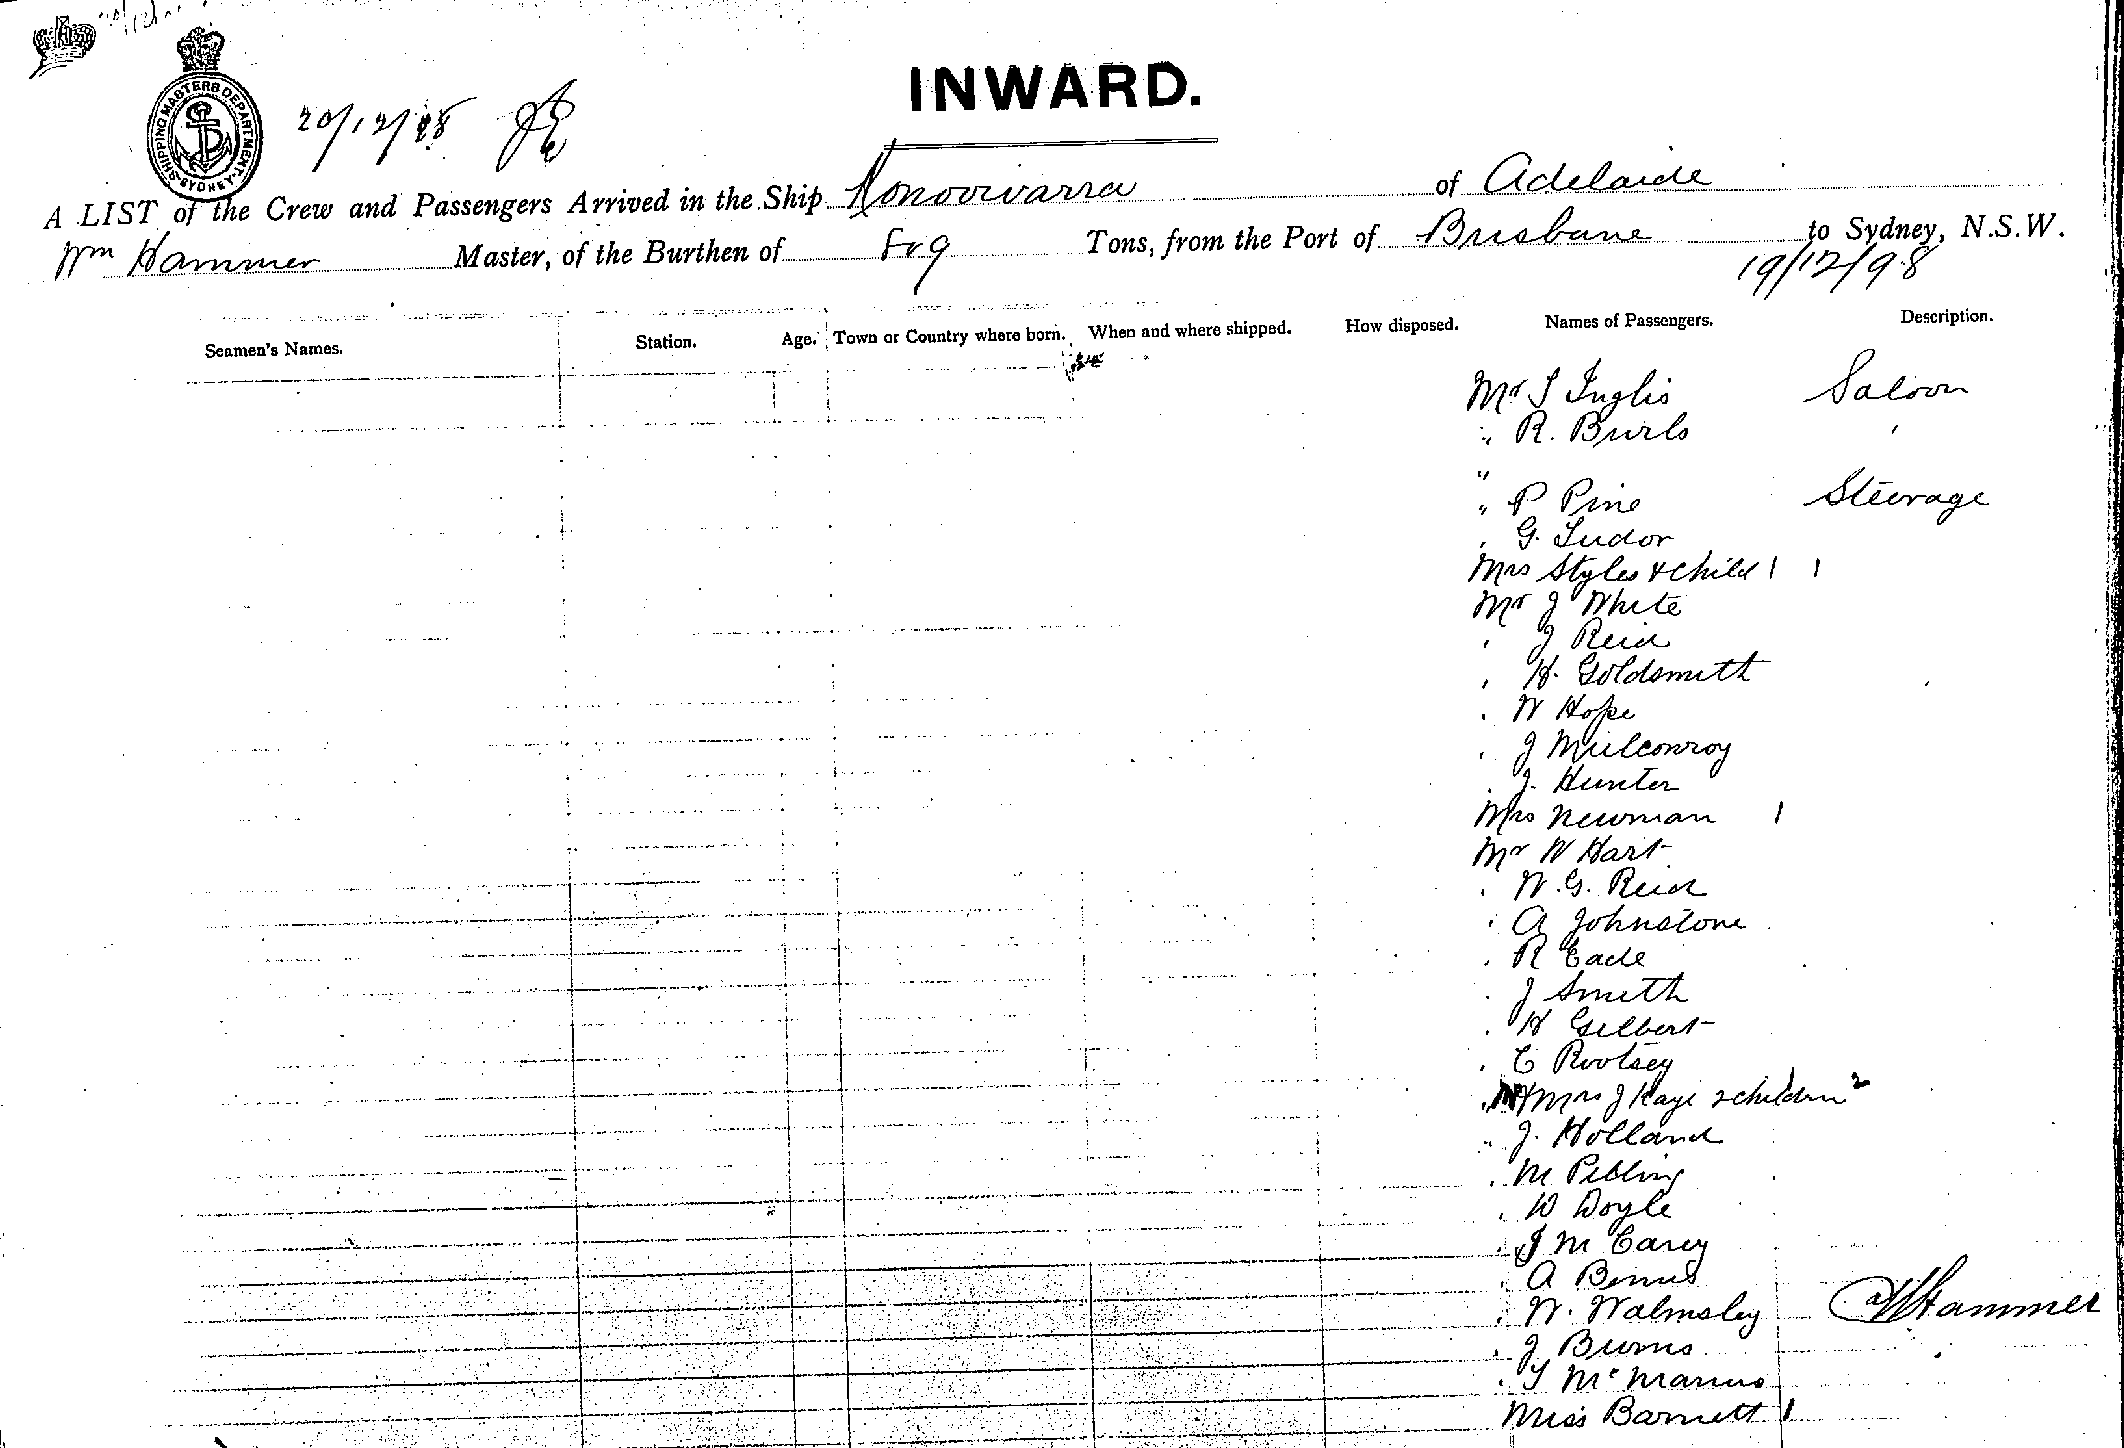 SHIPPING MASTERS DEPARTMENT SYDNEY
20/12/98
INWARD.
A LIST of the Crew and Passengers Arrived in the Ship Konoowarra of Adelaide
Wm Hammer Master, of the Burthen of Tons, from the Port of Brisbane to Sydney, N.S.W.
19/12/98
Seamen's Names. Station. Age. Town or Country where born. When and where shipped. How disposed. Names of Passengers. Description.
Mr S Inglis Saloon
" R. Burls
"
" P Pine Steerage
G. Tudor
Mrs Styles & child 1 1
Mr J White
J Reid
H. Goldsmith
W Hope
J Mulconroy
J. Hunter
Mrs Newman 1
Mr W Hart
W. G. Reid
A Johnstone
R Eade
J Smith
H Gilbert
C Rootsey
Mrs J Kaye & children 2
" J. Holland
M Pelling
W Doyle
J M Carey
A Binns
W. Walmsley
WHammer
J Burns
T McManus
Miss Barnett 1